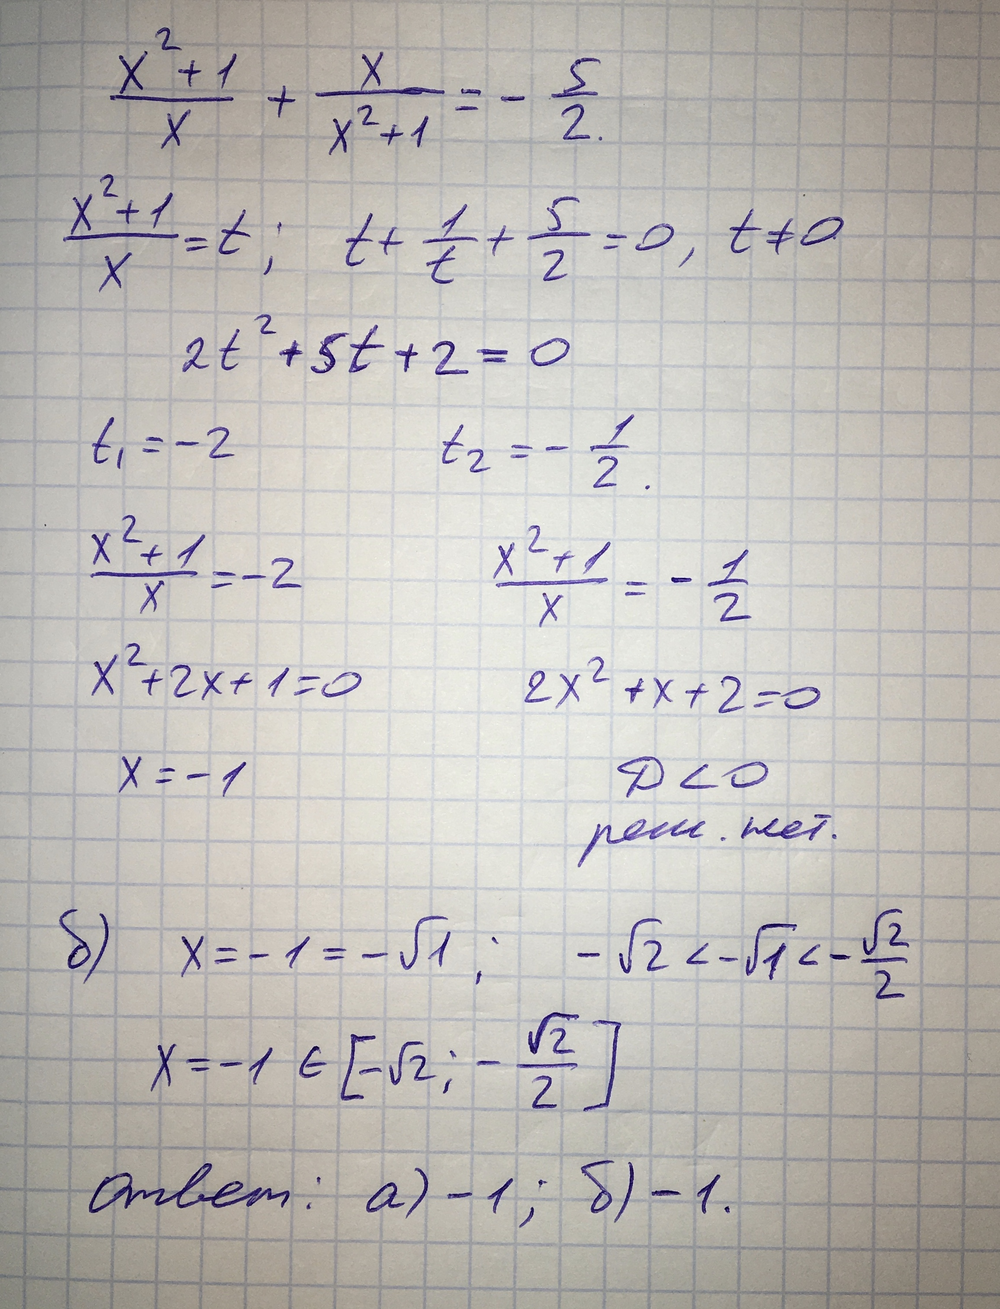 (x²+1)/x + x/(x²+1) = - 5/2.
(x²+1)/x = t; t + 1/t + 5/2 = 0, t ≠ 0
2t² + 5t + 2 = 0
t₁ = -2 t₂ = - 1/2.
(x²+1)/x = -2 (x²+1)/x = - 1/2
x²+2x+1=0 2x²+x+2=0
x = -1 D < 0
реш. нет.
б) x = -1 = -√1; -√2 < -√1 < -√2/2
x = -1 ∈ [-√2; -√2/2]
Ответ: а) -1; б) -1.